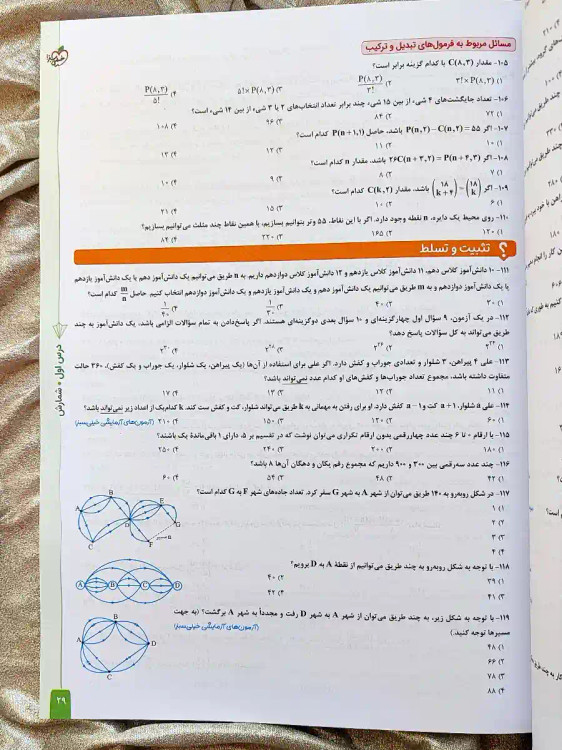 مسائل مربوط به فرمول‌های تبدیل و ترکیب
۱۰۵- مقدار C(۸,۳) با کدام گزینه برابر است؟
۱) ۳!×P(۸,۳) ۲) P(۸,۳)/۳! ۳) ۵!×P(۸,۳) ۴) P(۸,۳)/۵!
۱۰۶- تعداد جایگشت‌های ۴ شیء از بین ۱۵ شیء چند برابر تعداد انتخاب‌های ۲ یا ۳ شیء از بین ۱۴ شیء است؟
۱) ۷۲ ۲) ۸۴ ۳) ۹۶ ۴) ۱۰۸
۱۰۷- اگر P(n,۲) - C(n,۲) = ۵۵ باشد، حاصل P(n+۱,۱) کدام است؟
۱) ۱۰ ۲) ۱۱ ۳) ۱۲ ۴) ۱۳
۱۰۸- اگر ۲۶C(n+۳,۲) = P(n+۴,۳) باشد، مقدار n کدام است؟
۱) ۷ ۲) ۸ ۳) ۹ ۴) ۱۰
۱۰۹- اگر (۱۸ k+۴) = (۱۸ k) باشد، مقدار C(k,۲) کدام است؟
۱) ۶ ۲) ۱۰ ۳) ۱۵ ۴) ۲۱
۱۱۰- روی محیط یک دایره، n نقطه وجود دارد. اگر با این نقاط، ۵۵ وتر بتوانیم بسازیم، با همین نقاط چند مثلث می‌توانیم بسازیم؟
۱) ۱۲۰ ۲) ۱۶۵ ۳) ۲۲۰ ۴) ۸۴
تثبیت و تسلط
۱۱۱- ۱۰ دانش‌آموز کلاس دهم، ۱۱ دانش‌آموز کلاس یازدهم و ۱۲ دانش‌آموز کلاس دوازدهم داریم. به n طریق می‌توانیم یک دانش‌آموز دهم یا یک دانش‌آموز یازدهم
یا یک دانش‌آموز دوازدهم و به m طریق می‌توانیم یک دانش‌آموز دهم و یک دانش‌آموز یازدهم و یک دانش‌آموز دوازدهم انتخاب کنیم. حاصل m/n کدام است؟
۱) ۳۰ ۲) ۴۰ ۳) ۱/۳۰ ۴) ۱/۴۰
۱۱۲- در یک آزمون، ۹ سؤال اول چهارگزینه‌ای و ۱۰ سؤال بعدی دوگزینه‌ای هستند. اگر پاسخ‌دادن به تمام سؤالات الزامی باشد، یک دانش‌آموز به چند
طریق می‌تواند به کل سؤالات پاسخ دهد؟
۳) ۲۲۸ ۴) ۲۳۰
۱۱۳- علی ۴ پیراهن، ۳ شلوار و تعدادی جوراب و کفش دارد. اگر علی برای استفاده از آن‌ها (یک پیراهن، یک شلوار، یک جوراب و یک کفش)، ۳۶۰ حالت
متفاوت داشته باشد، مجموع تعداد جوراب‌ها و کفش‌های او کدام عدد نمی‌تواند باشد؟
۱) ۱۱ ۲) ۱۲ ۳) ۱۳ ۴) ۱۷
۱۱۴- علی a شلوار، a+۱ کت و a-۱ کفش دارد. او برای رفتن به مهمانی به k طریق می‌تواند شلوار، کت و کفش ست کند. k کدام‌یک از اعداد زیر نمی‌تواند باشد؟
۱) ۶۰ ۲) ۱۲۰ ۳) ۱۵۰ ۴) ۲۱۰ (آزمون‌های آزمایشی خیلی سبز)
۱۱۵- با ارقام ۰ تا ۶ چند عدد چهاررقمی بدون ارقام تکراری می‌توان نوشت که در تقسیم بر ۵، دارای ۱ باقی‌ماندهٔ یک باشند؟
۱) ۱۸۰ ۲) ۲۰۰ ۳) ۲۴۰ ۴) ۲۵۰
۱۱۶- چند عدد سه‌رقمی بین ۳۰۰ و ۹۰۰ داریم که مجموع رقم یکان و دهگان آن‌ها ۸ باشد؟
۱) ۴۲ ۲) ۴۸ ۳) ۵۴ ۴) ۶۰
۱۱۷- در شکل روبه‌رو به ۱۴۰ طریق می‌توان از شهر A به شهر G سفر کرد. تعداد جاده‌های شهر F به G کدام است؟
۱) ۱
۲) ۲
۳) ۳
۴) ۴
A B C D E F G n
۱۱۸- با توجه به شکل روبه‌رو به چند طریق می‌توانیم از نقطهٔ A به D برویم؟
۱) ۳۹ ۲) ۴۰
۳) ۴۱ ۴) ۴۲
A B C D
۱۱۹- با توجه به شکل زیر، به چند طریق می‌توان از شهر A به شهر D رفت و مجدداً به شهر A برگشت؟ (به جهت
مسیرها توجه کنید.) (آزمون‌های آزمایشی خیلی سبز)
۱) ۴۸
۲) ۶۶
۳) ۷۸
۴) ۸۸
A B C D
درس اول • شمارش
۲۹